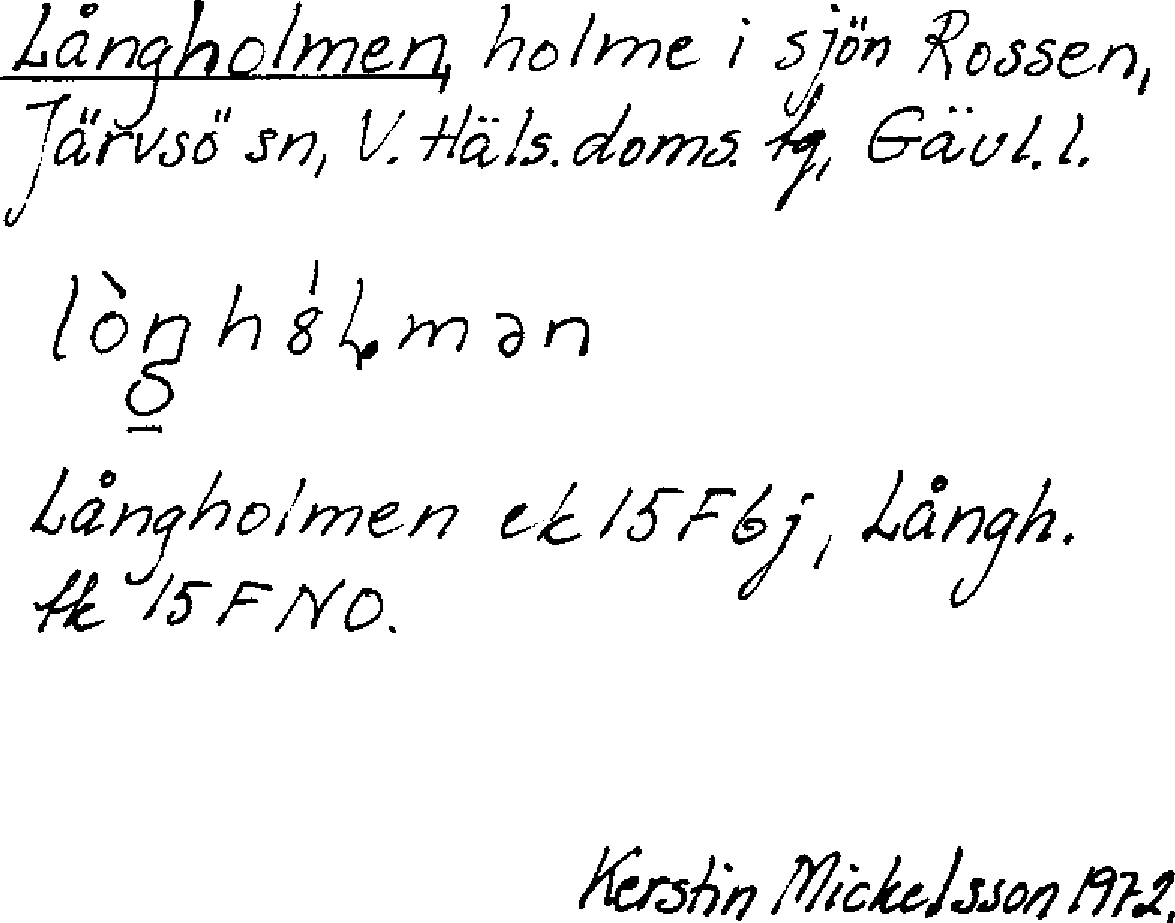 Långholmen, holme i sjön Rossen,
Järvsö sn, V. Häls. doms. tg, Gävl. l.
Långholmen ek 15 F 6 j, Långh.
tk 15 F NO.
Kerstin Mickelsson 1972.